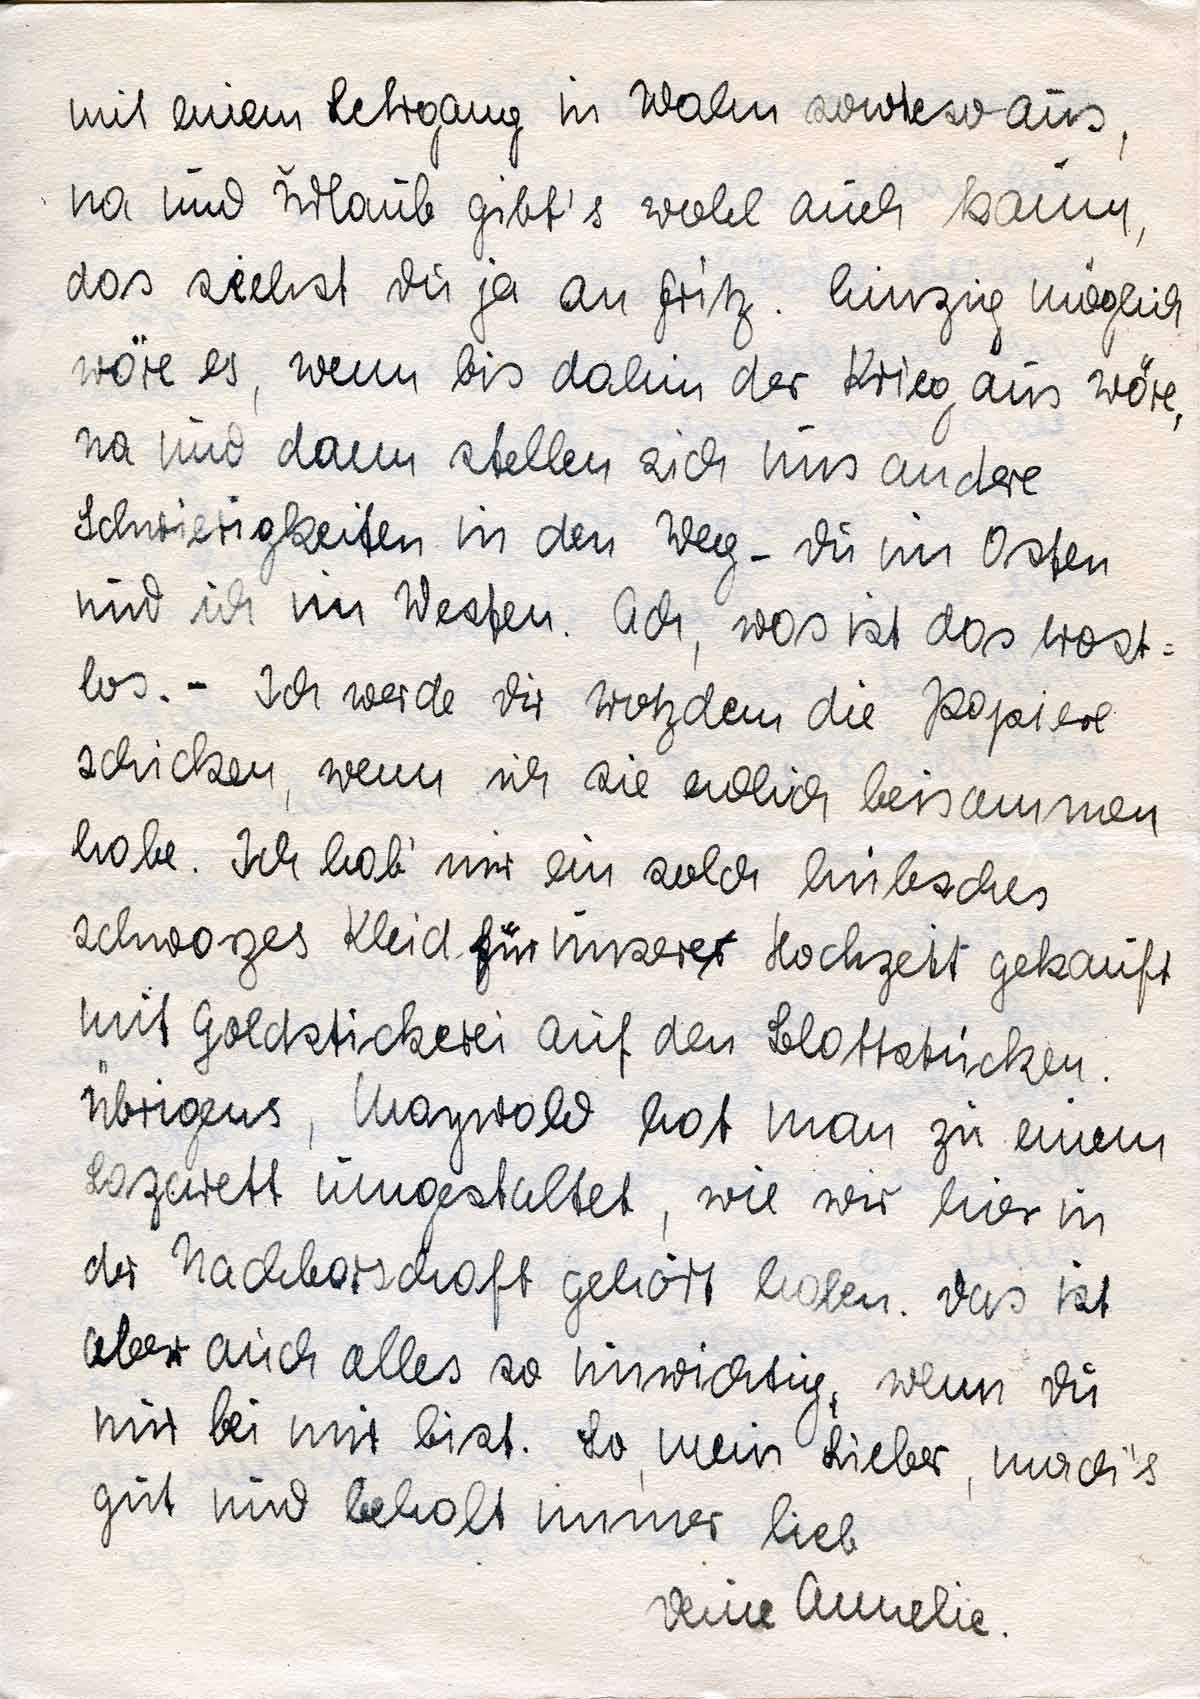 mit einem Lehrgang in Wahn sowieso aus,
na und Urlaub gibt's wohl auch kaum,
das siehst du ja an Fritz. Einzig möglich
wäre es, wenn bis dahin der Krieg aus wäre,
na und dann stellen sich uns andere
Schwierigkeiten in den Weg - du im Osten
und ich im Westen. Ach, was ist das trost=
los. - Ich werde dir trotzdem die Papiere
schicken, wenn ich sie endlich beisammen
habe. Ich hab' mir ein solch hübsches
schwarzes Kleid für unserer Hochzeit gekauft
mit Goldstickerei auf den
Übrigens, Maywald hat man zu einem
Lazarett umgestaltet, wie wir hier in
der Nachbarschaft gehört haben. Das ist
aber auch alles so unwichtig, wenn du
nur bei mir bist. So, mein Lieber, mach's
gut und behalt immer lieb
deine Annelie.